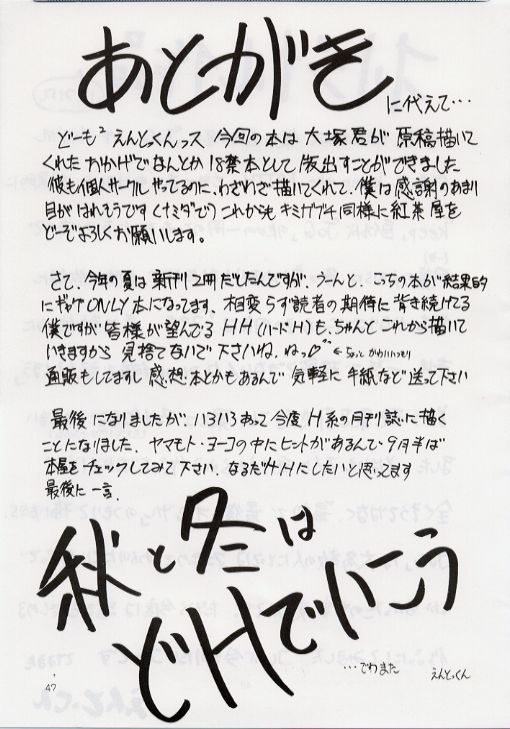 あとがき
に代えて…
どーも² えんどっくんっス 今回の本は 大塚君が 原稿描いて
くれたおかげでなんとか 18禁本として 販出すことができました
彼も個人サークルやってるのに、わざわざ描いてくれて、僕は感謝のあまり
目がはれそうです(ナミダで) これからも キミガブチ同様に 紅茶屋を
どーぞよろしくお願いします。
さて、今年の夏は 新刊2冊だしたんですが、うーんと、こっちの本が結果的
にギャグONLY本になってます、相変らず読者の期待に背き続けてる
僕ですが 皆様が望んでる HH(ハードH)も、ちゃんとこれから描いて
いきますから 見捨てないで下さいね、ね♡ ←ちょっとかわいいっぽい
通販もしてますし 感想本とかもあるんで 気軽に 手紙など送って下さい
最後になりましたが、いろいろあって今度 H系の月刊誌に描く
ことになりました、ヤマモト・ヨーコの中にヒントがあるんで、9月半ば
本屋をチェックしてみて下さい、なるだけHHにしたいと思ってます
最後に一言、
秋と冬は
どHでいこう
…でわまた
えんどっくん
47